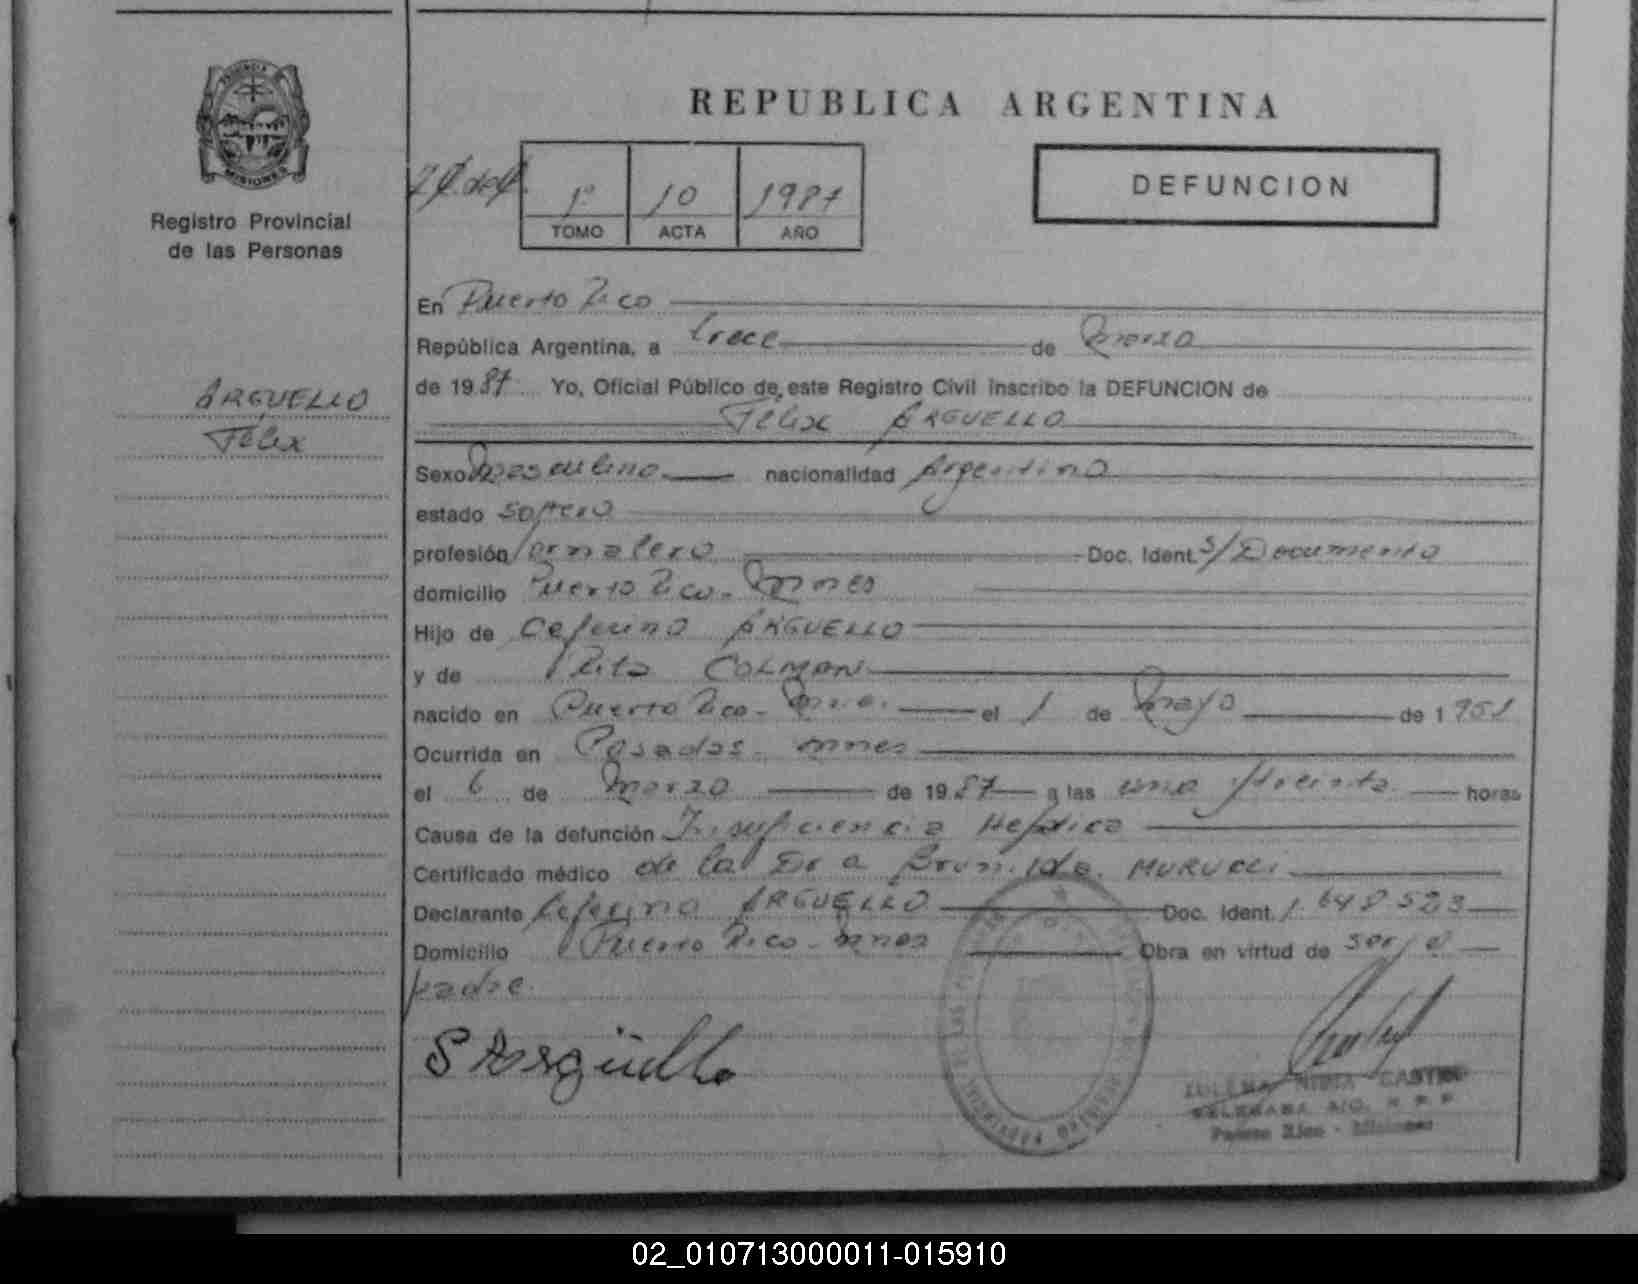 PROVINCIA
MISIONES
Registro Provincial
de las Personas
ARGUELLO
Félix
REPUBLICA ARGENTINA
1º 10 1987
TOMO ACTA AÑO
DEFUNCION
En Puerto Rico
República Argentina, a trece de marzo
de 1987 Yo, Oficial Público de este Registro Civil inscribo la DEFUNCION de
Félix ARGUELLO
Sexo masculino nacionalidad Argentino
estado soltero
profesión Jornalero Doc. Ident. S/Documento
domicilio Puerto Rico - Mnes
Hijo de Ceferino ARGUELLO
y de Rita COLMAN
nacido en Puerto Rico - Mnes. el 1 de mayo de 1951
Ocurrida en Posadas - Mnes
el 6 de marzo de 1987 a las una y treinta horas
Causa de la defunción Insuficiencia Hepática
Certificado médico de la Dra
Declarante Ceferino ARGUELLO Doc. Ident. 1.648.523
Domicilio Puerto Rico - Mnes Obra en virtud de ser el
padre.
S Argüello
ZULEMA NIDIA CASTRO
Puerto Rico - Misiones
02_010713000011-015910